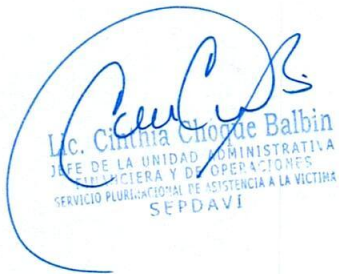 Lic. Cinthia Choque Balbin
JEFE DE LA UNIDAD ADMINISTRATIVA
FINANCIERA Y DE OPERACIONES
SERVICIO PLURINACIONAL DE ASISTENCIA A LA VICTIMA
SEPDAVI